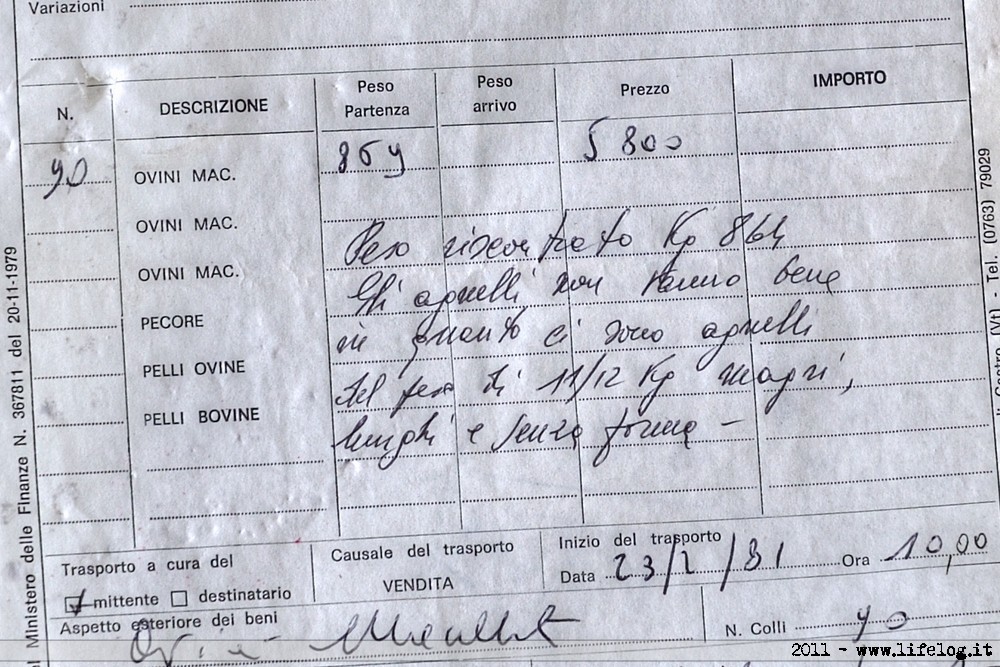 Variazioni
N. DESCRIZIONE Peso Partenza Peso arrivo Prezzo IMPORTO
90 OVINI MAC. 869 5800
OVINI MAC.
Peso riscontrato Kg 864
OVINI MAC.
Gli agnelli non vanno bene
PECORE
in quanto ci sono agnelli
PELLI OVINE
del peso di 11/12 Kg magri,
PELLI BOVINE
lunghi e senza forma -
Trasporto a cura del
mittente destinatario
Causale del trasporto
VENDITA
Inizio del trasporto
Data 23/2/81 Ora 10,00
Aspetto esteriore dei beni
Ovini
N. Colli 90
el Ministero delle Finanze N. 367811 del 20-11-1979
Castro (Vt) - Tel. (0763) 79029
2011 - www.lifelog.it